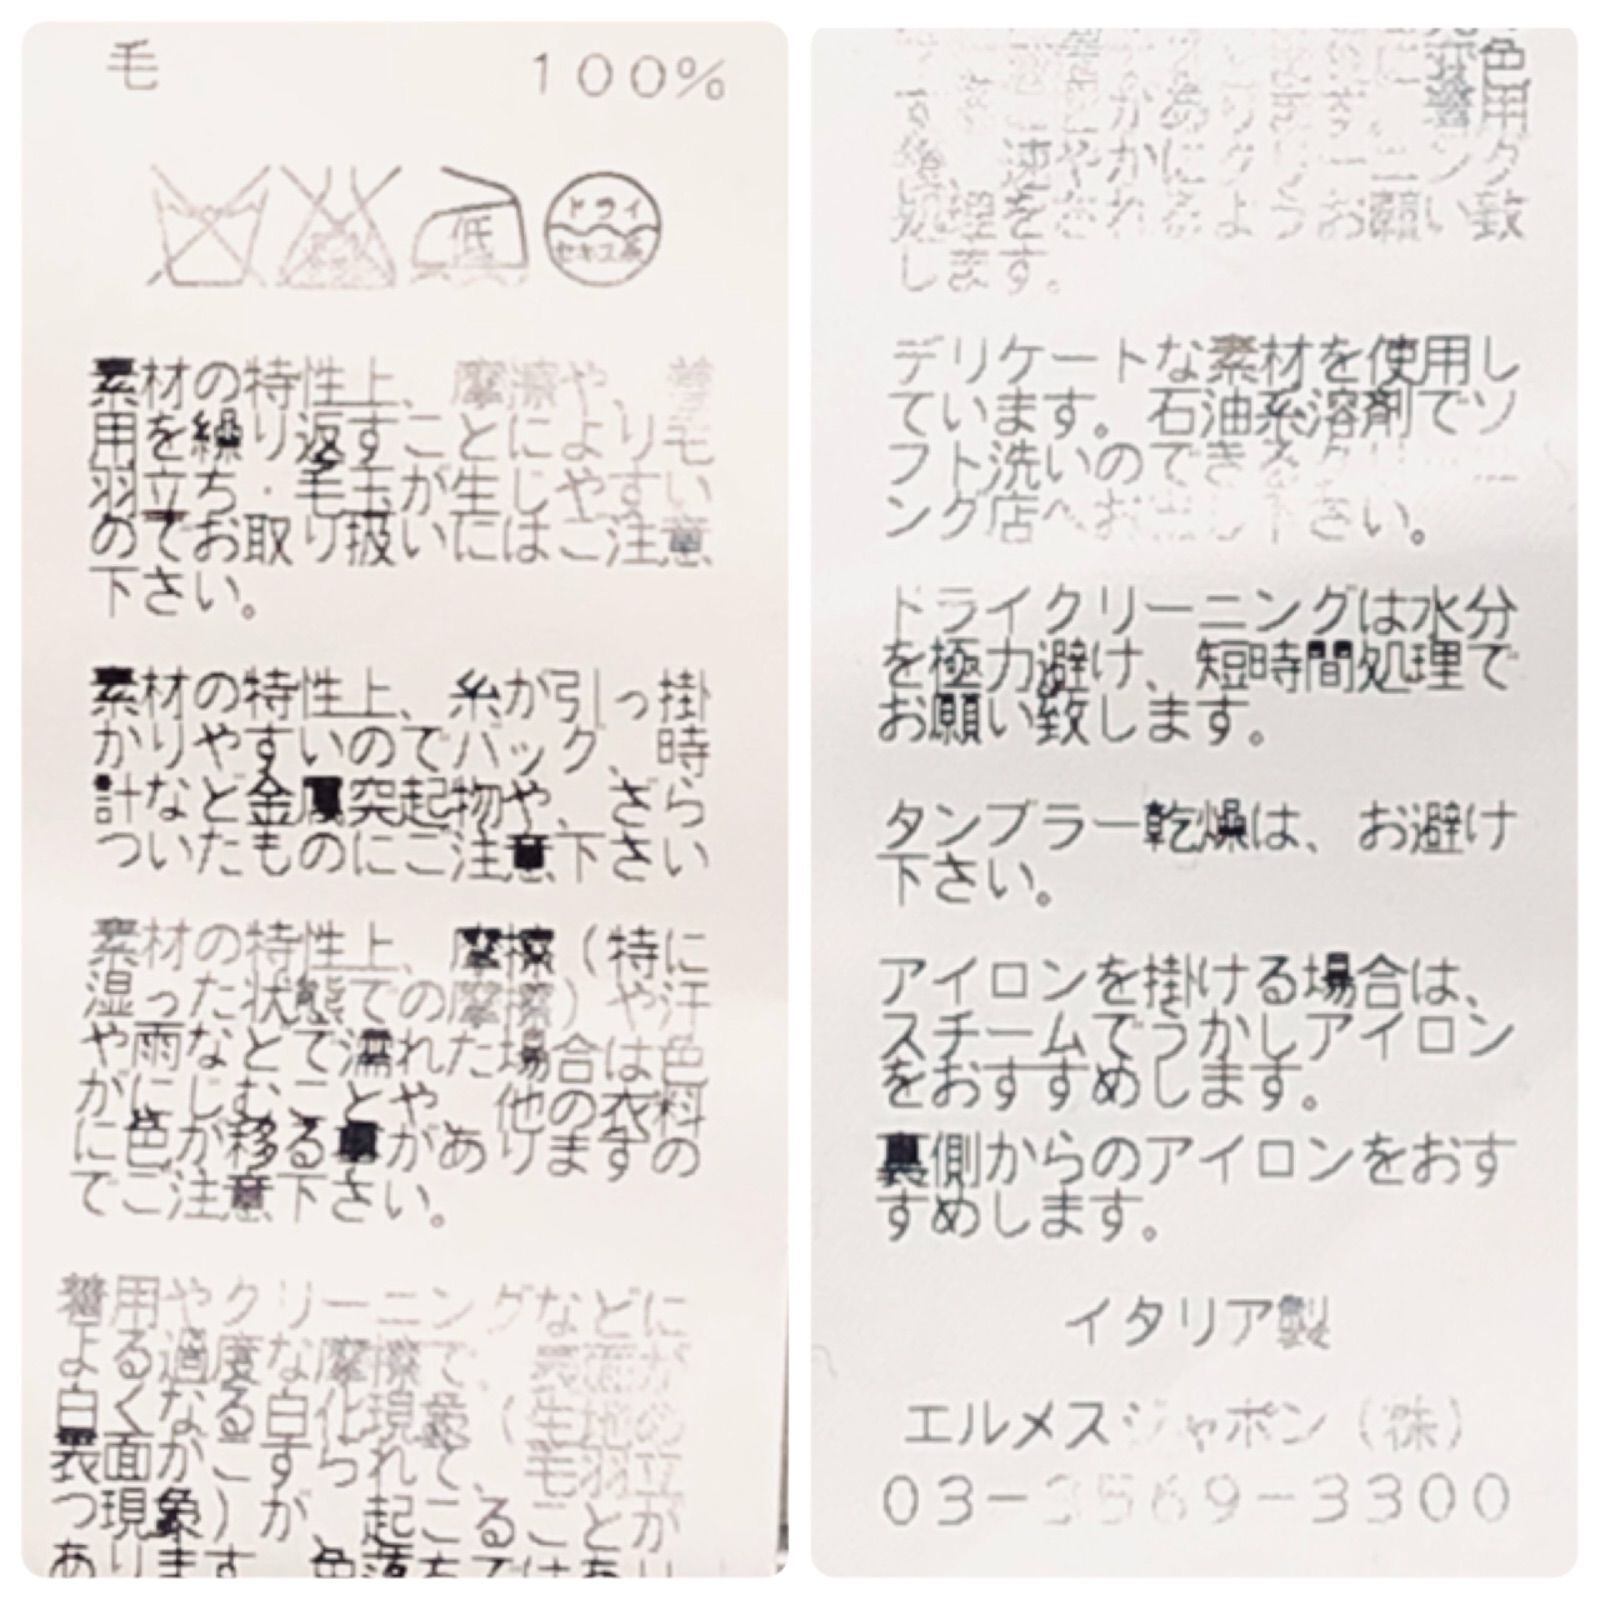 毛 100%
低
ドライ
セキユ系
素材の特性上、摩擦や、着
用を繰り返すことにより毛
羽立ち・毛玉が生じやすい
のでお取り扱いにはご注意
下さい。
素材の特性上、糸が引っ掛
かりやすいのでバッグ、時
計など金属突起物や、ざら
ついたものにご注意下さい
素材の特性上、摩擦(特に
湿った状態での摩擦)や汗
や雨などで濡れた場合は色
がにじむことや、他の衣料
に色が移る事がありますの
でご注意下さい。
着用やクリーニングなどに
よる過度な摩擦で、表面が
白くなる白化現象(生地の
表面がこすられて、毛羽立
つ現象)が、起こることが
あります。色落ちではあり
色
着用
後、速やかにクリーニング
処理をされるようお願い致
します。
デリケートな素材を使用し
ています。石油系溶剤でソ
フト洗いのできるクリーニ
ング店へお出し下さい。
ドライクリーニングは水分
を極力避け、短時間処理で
お願い致します。
タンブラー乾燥は、お避け
下さい。
アイロンを掛ける場合は、
スチームでうかしアイロン
をおすすめします。
裏側からのアイロンをおす
すめします。
イタリア製
エルメスジャポン(株)
03-3569-3300